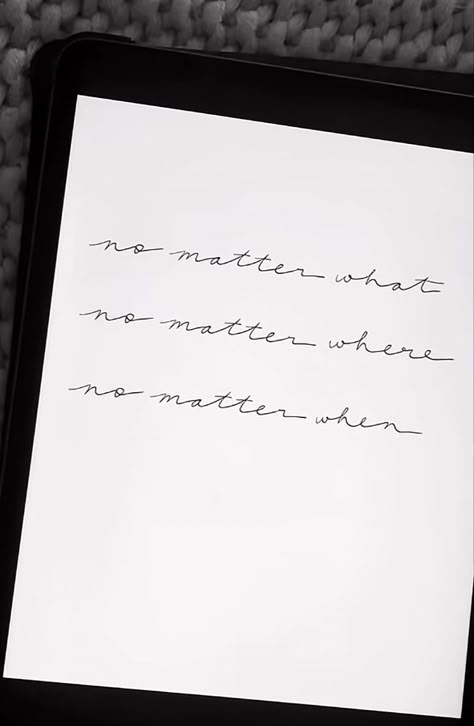 no matter what
no matter where
no matter when